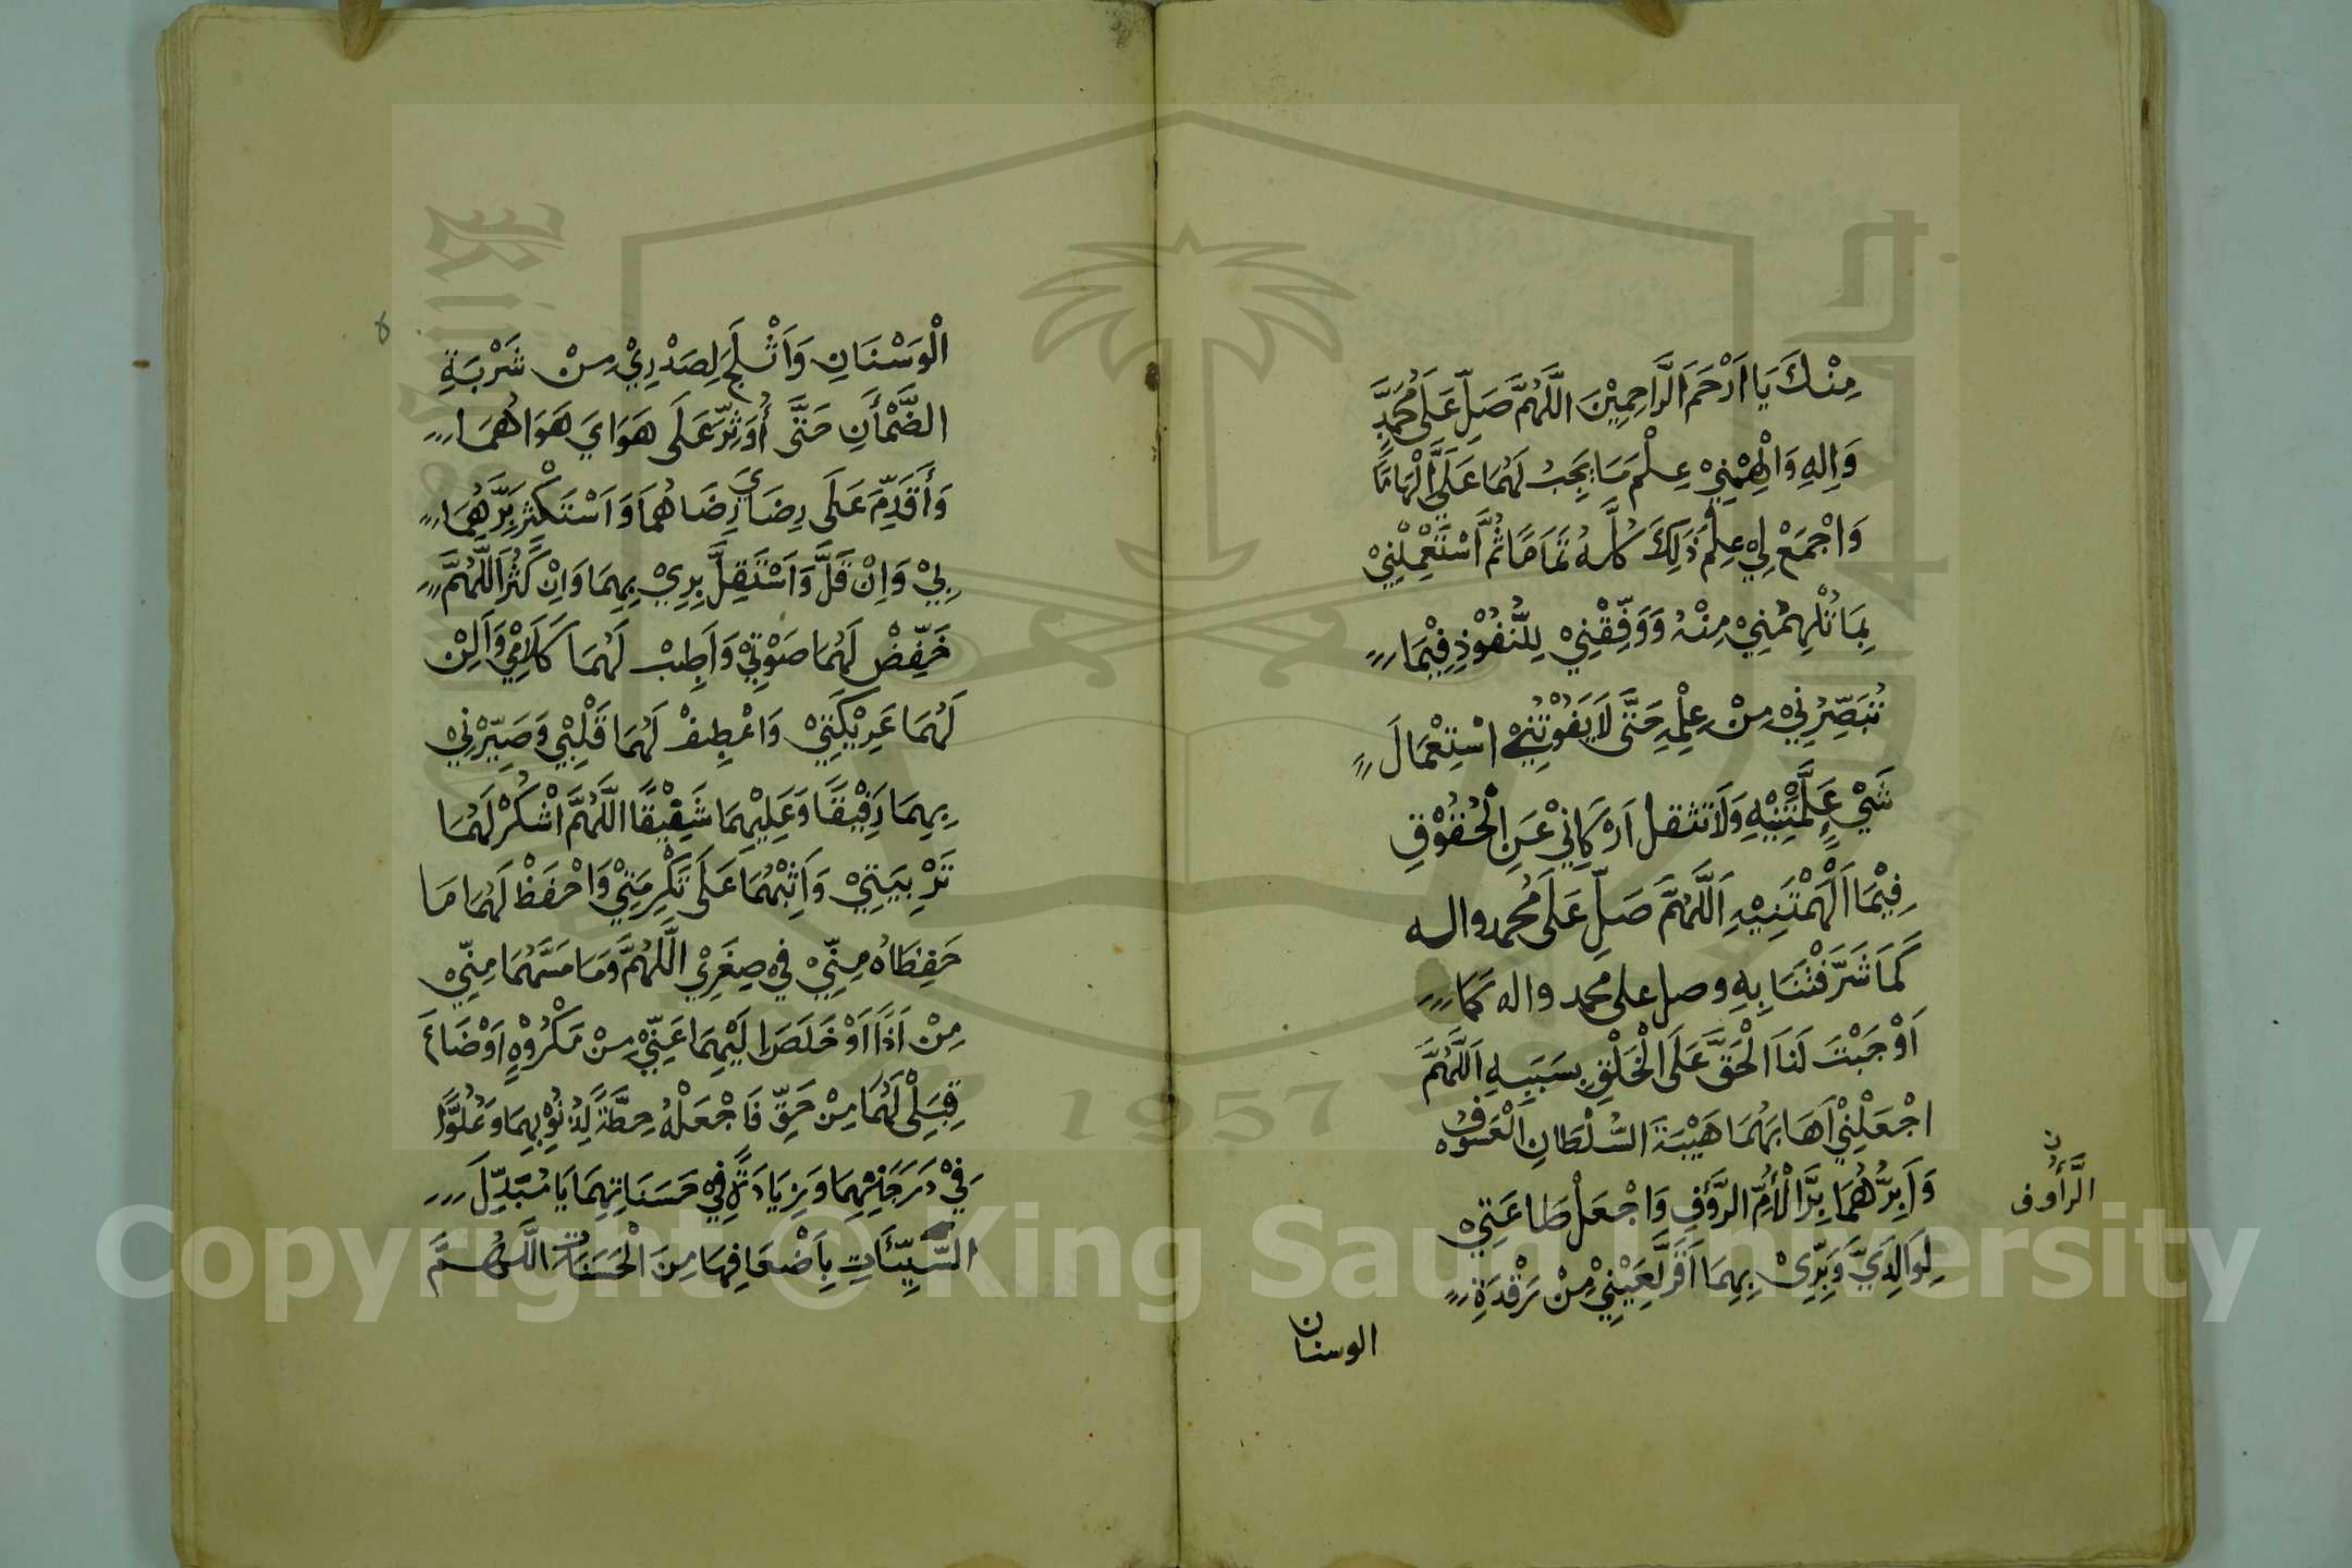 مِنْكَ يَا اَرْحَمَ الرَّاحِمِيْنَ اللَّهُمَّ صَلِّ عَلَى مُحَمَّدٍ
وَاٰلِهِ وَاَلْهِمْنِيْ عِلْمَ مَا يَجِبُ لَهُمَا عَلَيَّ اِلْهَامًا
وَاجْمَعْ لِيْ عِلْمَ ذٰلِكَ كُلِّهُ تَمَامًا ثُمَّ اسْتَعْمِلْنِيْ
بِمَا تُلْهِمُنِيْ مِنْهُ وَوَفِّقْنِيْ لِلنُّفُوْذِ فِيْمَا
تُبَصِّرُنِيْ مِنْ عِلْمِهِ حَتَّى لَا يَفُوْتَنِيْ اسْتِعْمَالَ
شَيْءٍ عَلَّمْتَنِيْهِ وَلَا تثقل اَرْكَانِيْ عَنِ الْحُقُوْقِ
فِيْمَا اَلْهَمْتَنِيْهِ اَللَّهُمَّ صَلِّ عَلَى مُحمد واله
كَمَا شَرَّفْتَنَا بِهِ وصل على محمد واله كما
اَوْجَبْتَ لَنَا الْحَقَّ عَلَى الْخَلْقِ بِسَبَبِهِ اَللَّهُمَّ
اجْعَلْنِيْ اَهَابُهُمَا هَيْبَةَ السُّلْطَانِ الْعَسُوْفِ
وَاَبِرُّهُمَا بِرَّ الْأُمِّ الرَّؤُفِ وَاجْعَلْ طَاعَتِيْ
الرَّأُوف
لِوَالِدَيَّ وَبِرِّيْ بِهِمَا اَقَرَّ لِعَيْنِيْ مِنْ رَقْدَةِ
الوسنان
الْوَسْنَانِ وَاَثْلَجَ لِصَدْرِيْ مِنْ شَرْبَةِ
الضَّمْأَنِ حَتَّى أُوَثِّرَ عَلَى هَوَايَ هَوَاهُمَا
وَأُقَدِّمَ عَلَى رِضَايَ رِضَاهُمَا وَاَسْتَكْثِرَ بِرَّهِمَا
بِيْ وَاِنْ قَلَّ وَاَسْتَقِلَّ بِرِيْ بِهِمَا وَاِنْ كَثُرَ اَللَّهُمَّ
خَفِّضْ لَهُمَا صَوْتِيْ وَاَطِبْ لَهُمَا كَلَامِيْ وَاَلِنْ
لَهُمَا عَرِيْكَتِيْ وَاعْطِفْ لَهُمَا قَلْبِيْ وَصَيِّرْنِيْ
بِهِمَا رَفِيْقًا وَعَلَيْهِمَا شَفِيْقًا اللَّهُمَّ اشْكُرْ لَهُمَا
تَرْبِيَتِيْ وَاَثِبْهُمَا عَلَى تَكْرِمَتِيْ وَاحْفَظْ لَهُمَا مَا
حَفِظَاهُ مِنِّيْ فِيْ صِغَرِيْ اللَّهُمَّ وَمَا مَسَّهُمَا مِنِّيْ
مِنْ اَذًا اَوْ خَلَصَ اِلَيْهِمَا عَنِّيْ مِنْ مَكْرُوْهٍ اَوْضَاعَ
قِبَلِيْ لَهُمَا مِنْ حَقٍّ فَاجْعَلْهُ حِطَّةً لِذُنُوْبِهِمَا وَعُلُوًّا
فِيْ دَرَجَاتِهِمَا وَزِيَادَةً فِيْ حَسَنَاتِهِمَا يَا مُبَدِّلَ
السَّيِّئَاتِ بِاَضْعَافِهَا مِنَ الْحَسَنَاتِ اللَّهُمَّ
Copyright © King Saud University
1957